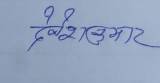 देवेशकुमार